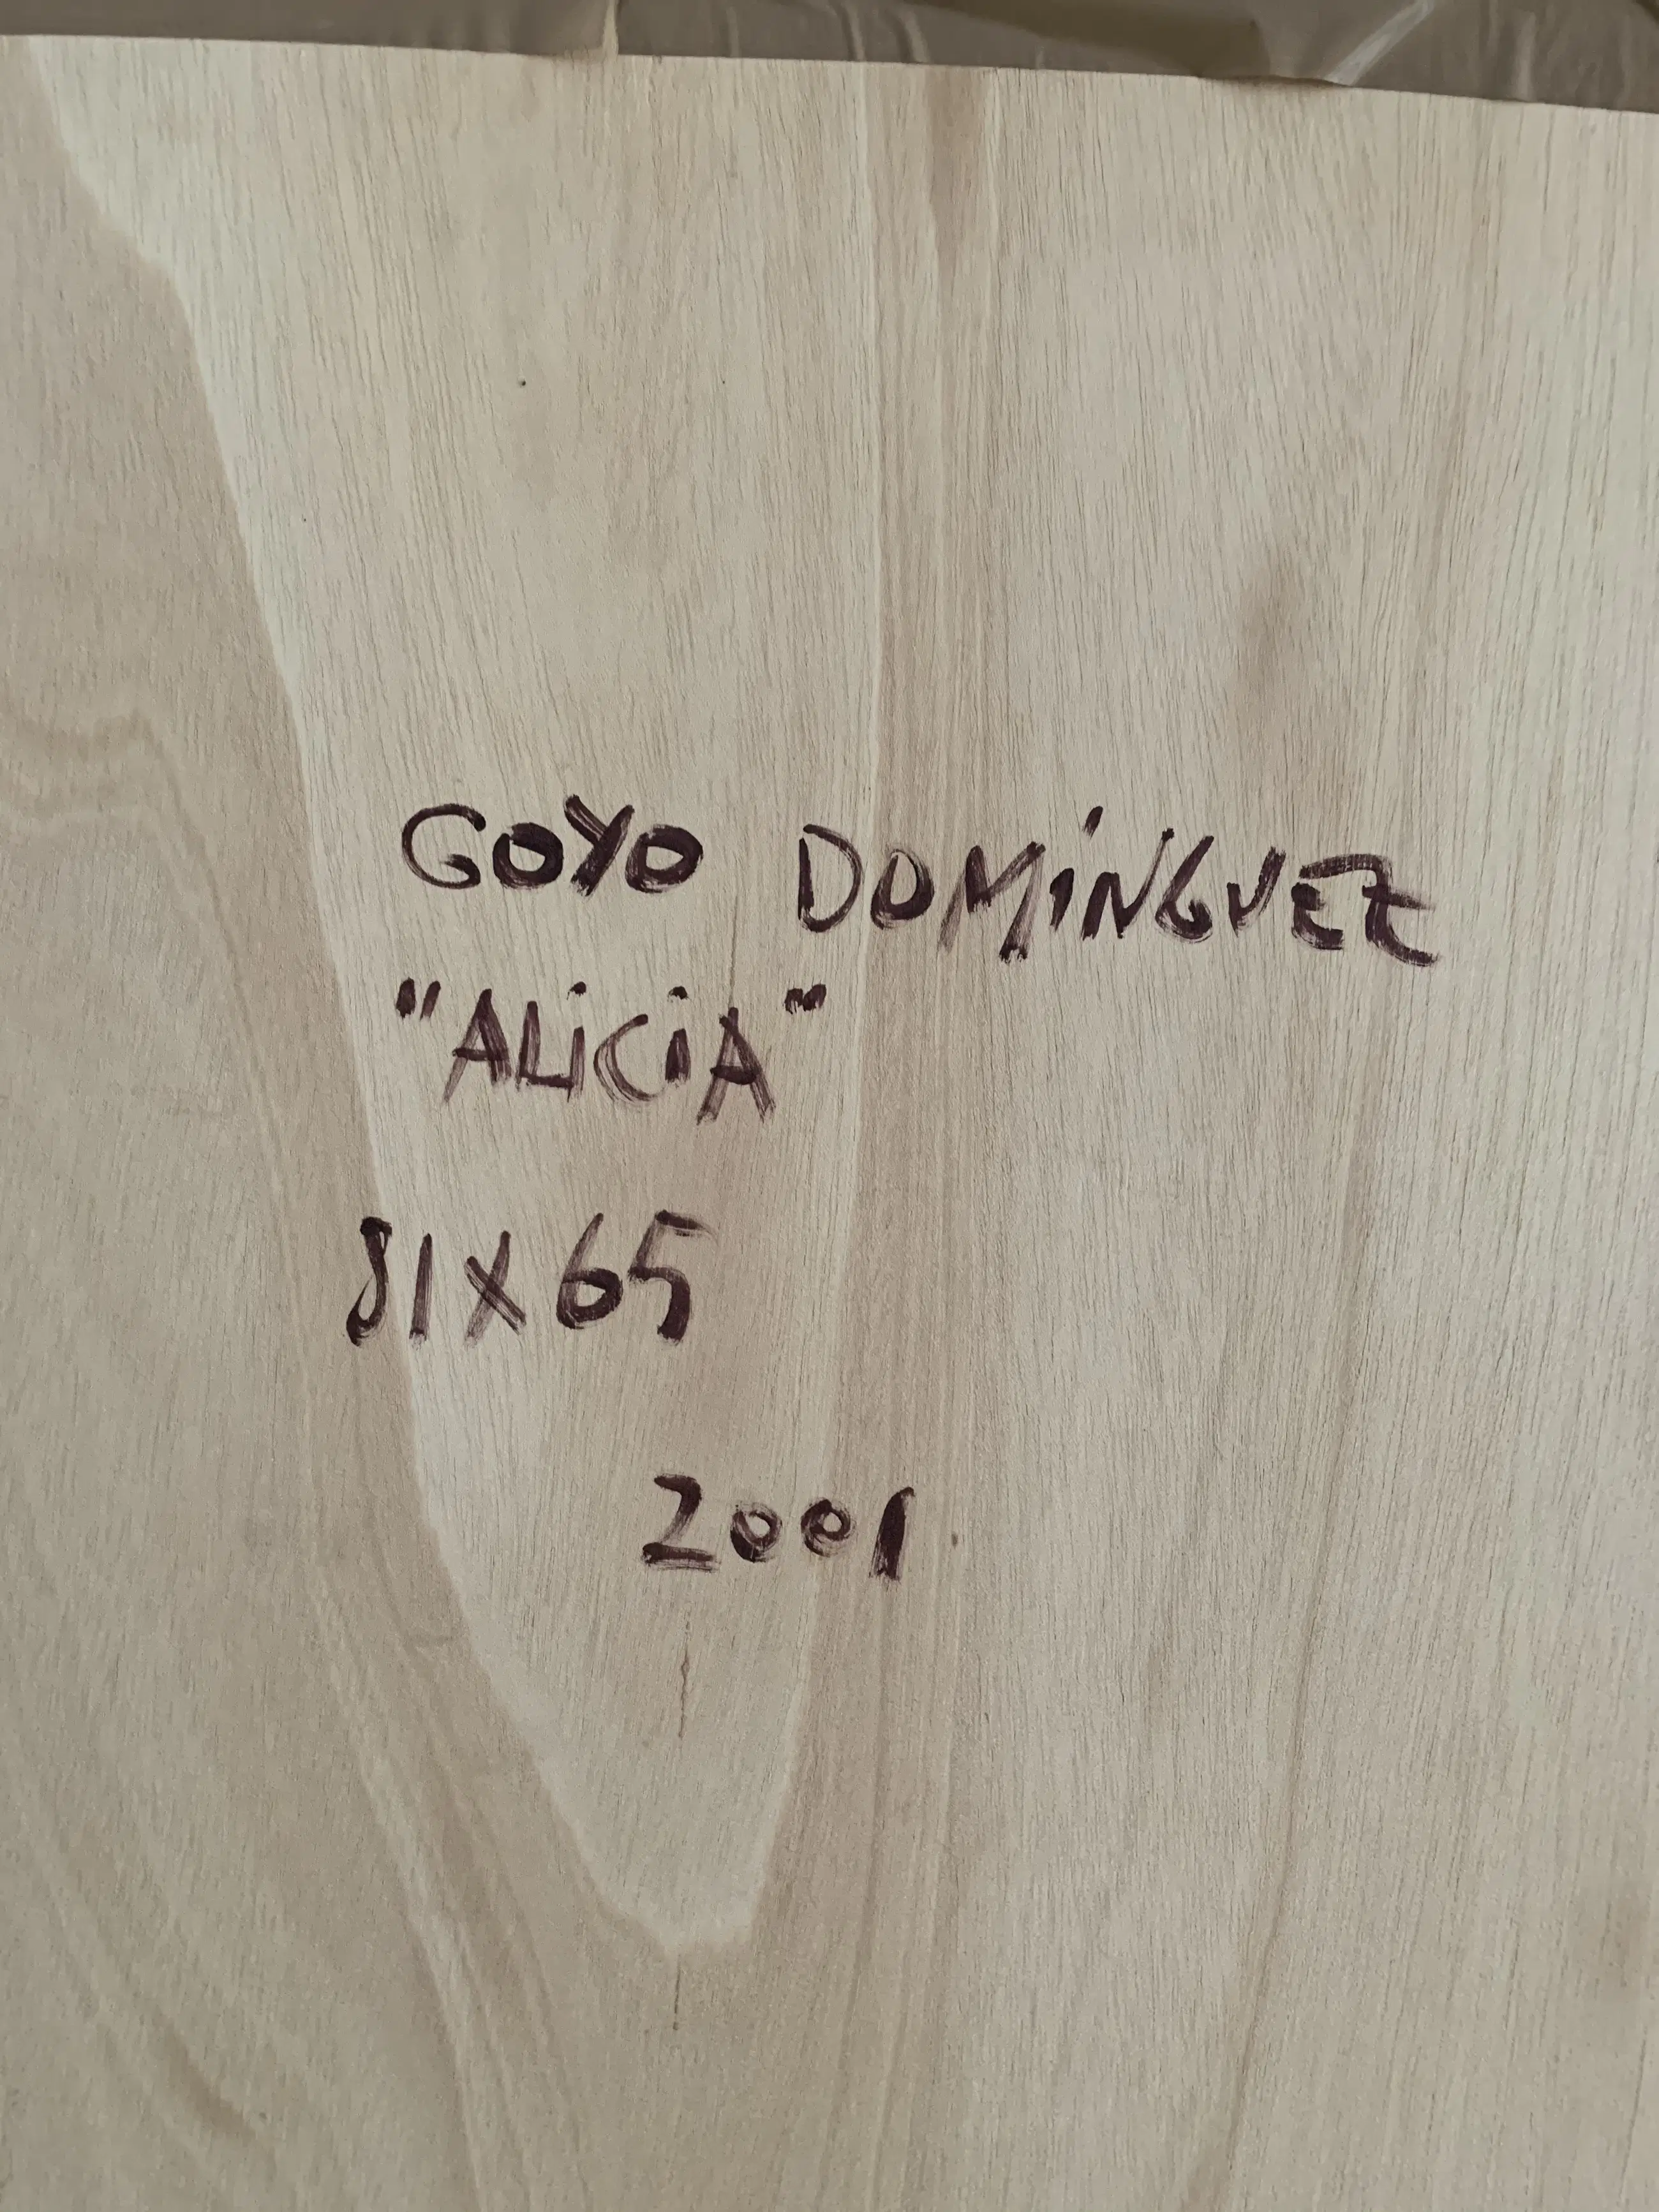 GOYO DOMiNGUEZ
"ALiCiA"
81X65
2001